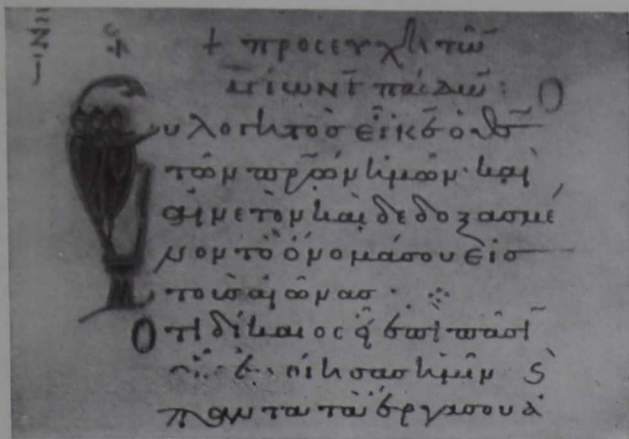 + προσευχὴ τῶ̅
ἁγίων Γ̅ παίδω̅ :
Εὐλογητὸσ εἶ κ̅σ̅ ὁ θ̅σ̅
τῶν π̅ρ̅ων ἡμῶν· καὶ
αἰνετὸν καὶ δεδοξασμέ
νον τὸ ὄνομά σου εἰσ
τοὺσ αἰῶνασ·
Ὅτι δίκαιος εἶ ἐπὶ πᾶσῑ
ἐποίησασ ἡμῖν ϛ̀
πάντα τὰ ἔργα σου ἀ